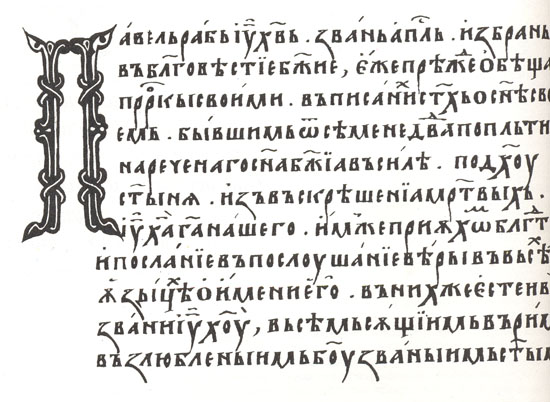 Павельрабьі҆у҃хв҃ь . званьап҃ль . и҆збрань
въбл҃говѣстїебж҃ие , є҆жепрѣж҃еѻбѣща
прⷪ҇ркысвоими . въписанїист҃хьосн҃ѣсво
емь . бывшимьѿсѣменедв҃апопльти
нареченагосн҃абж҃їавъсилѣ . подх҃оу
ст҃ынѧ . и҆зъвъскрѣшенїамрт҃выхь .
і҆ух҃аг҃анашего . и҆мжеприѧхѡⷨбл҃гт
и҆посланїевъпослоушанїевѣрывъвьсѣ
ѧ҆зыцѣⷯѻ҆имениє҆г҃о . вънихжеє҆стеив
званиі҆ух҃оу , вьсѣмьсѧщїимьвъри
възлюбленыимьб҃оузваныимьст҃ым